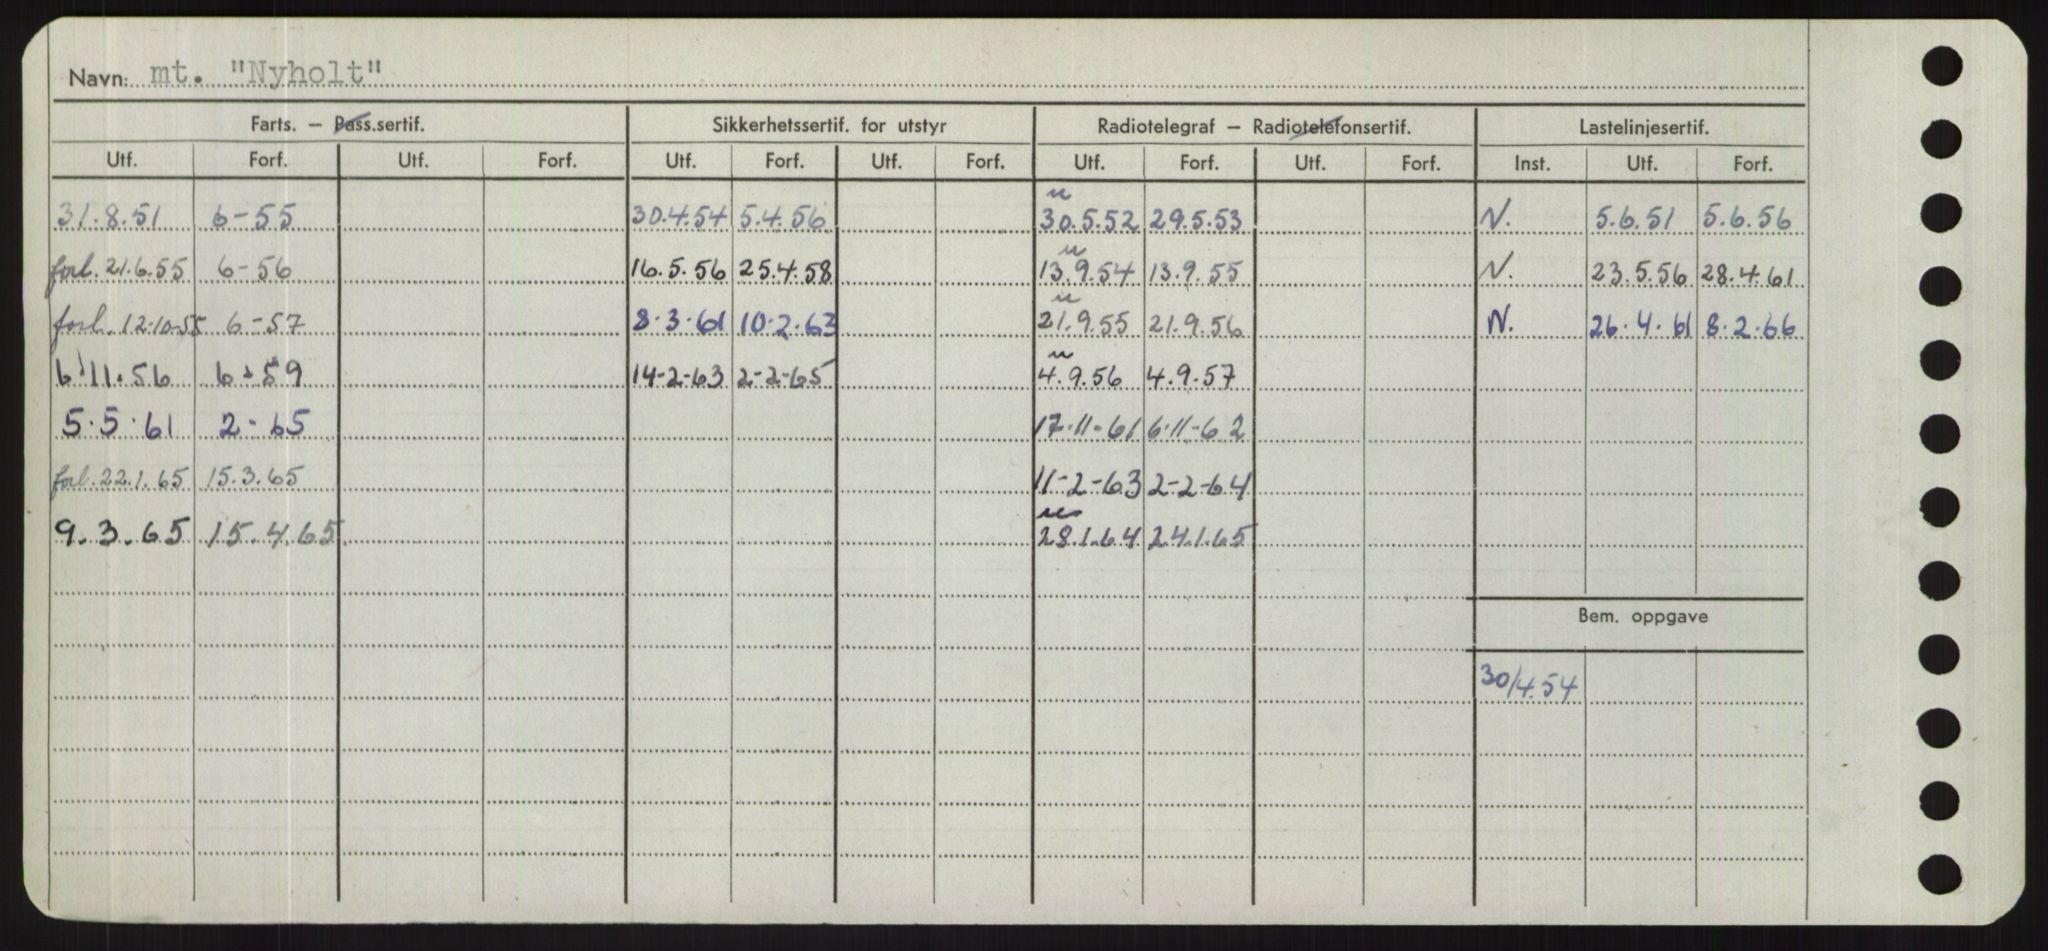 Navn: mt. "Nyholt"
Farts. — Pass.sertif. Sikkerhetssertif. for utstyr Radiotelegraf — Radiotelefonsertif. Lastelinjesertif.
Utf. Forf. Utf. Forf. Utf. Forf. Utf. Forf. Utf. Forf. Utf. Forf. Inst. Utf. Forf.
31.8.51 6-55 30.4.54 5.4.56 30.5.52 29.5.53 N. 5.6.51 5.6.56
forl. 21.6.55 6-56 16.5.56 25.4.58 13.9.54 13.9.55 N. 23.5.56 28.4.61
forl. 12-10-55 6-57 8-3-61 10-2-63 21.9.55 21.9.56 N. 26.4.61 8.2.66
6.11.56 6-59 14-2-63 2-2-65 4.9.56 4.9.57
5.5.61 2-65 17-11-61 6-11-62
forl. 22.1.65 15.3.65 11-2-63 2-2-64
9.3.65 15.4.65 28.1.64 24.1.65
Bem. oppgave
30/4.54